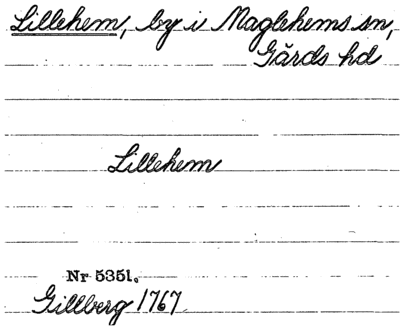 Lillehem, by i Maglehems sn,
Gärds hd
Lillehem
Nr 5351.
Gillberg 1767